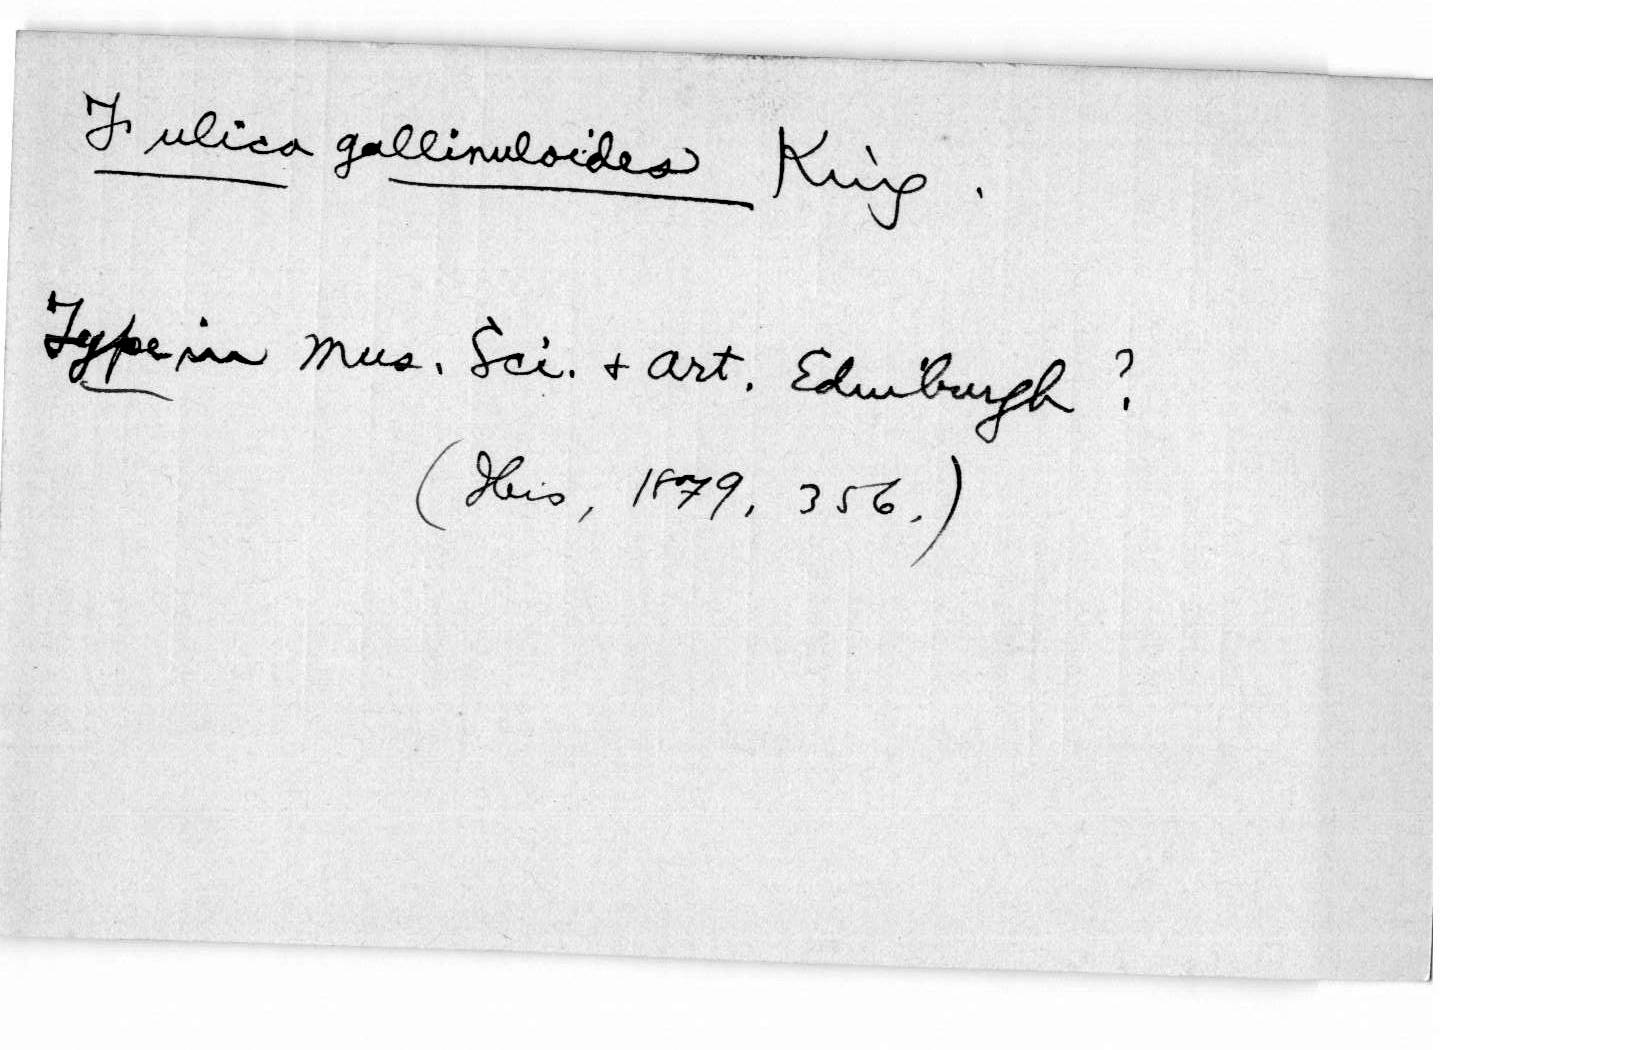 Fulica gallinuloides King.
Type in Mus. Sci. + Art. Edinburgh?
(Ibis, 1879, 356.)